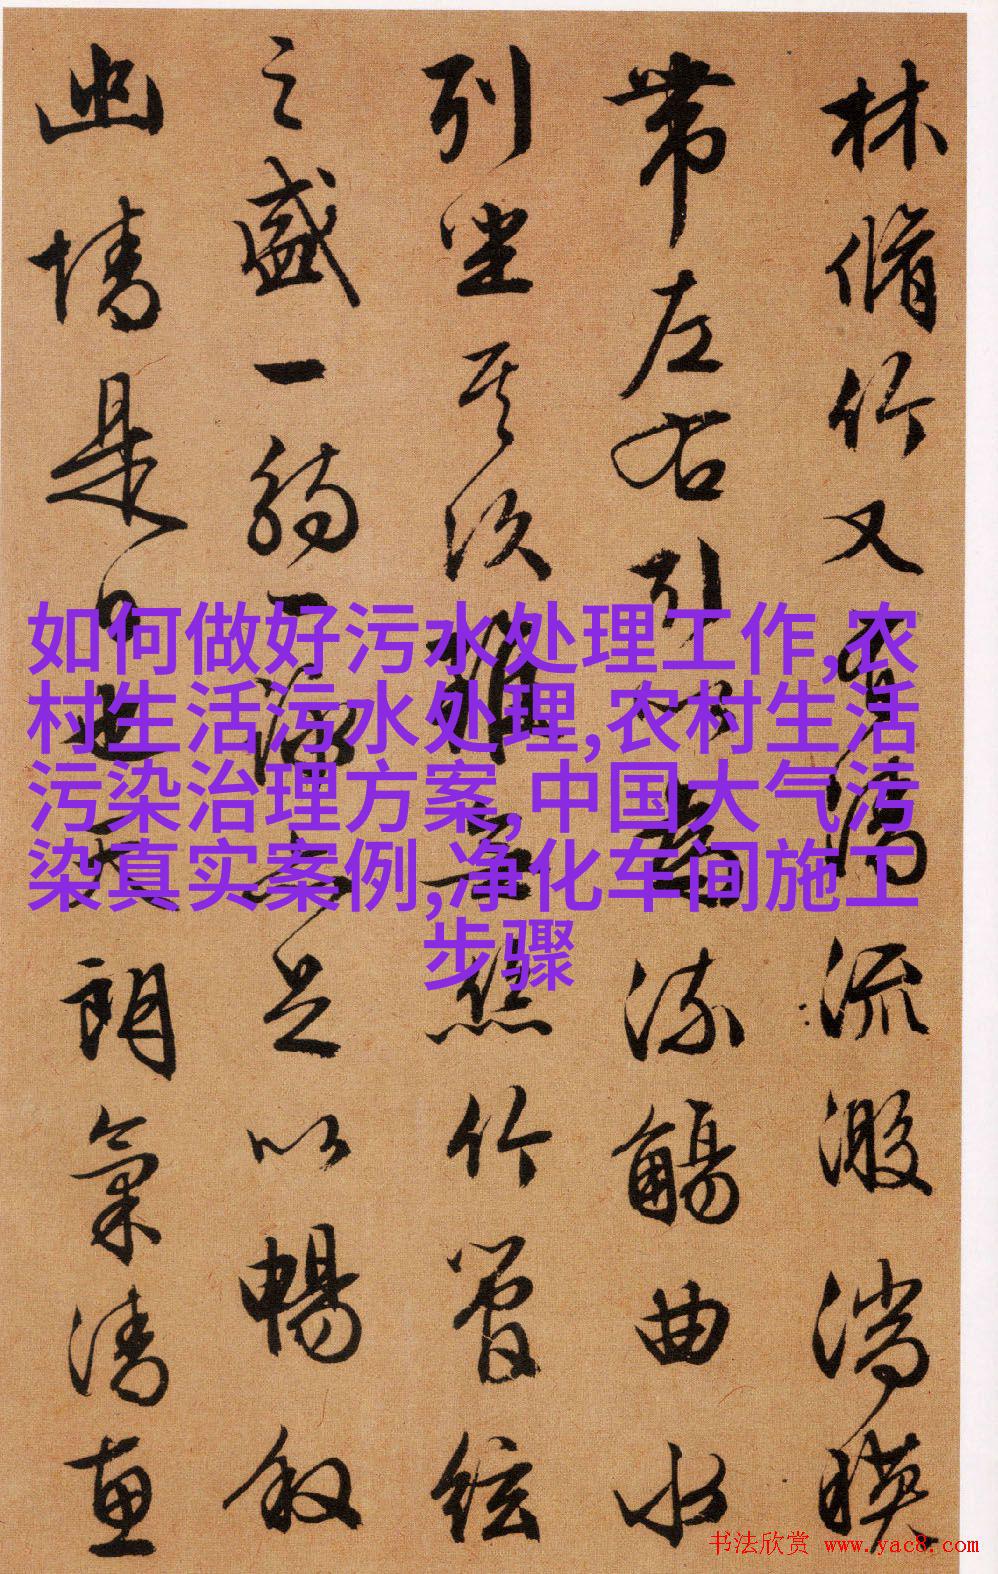 林脩竹又有清流激湍暎
帶左右引以為流觴曲水
列坐其次雖無絲竹管絃
之盛一觴一詠亦足以暢叙
幽情是日也天朗氣清惠
如何做好污水处理工作,农
村生活污水处理,农村生活
污染治理方案,中国大气污
染真实案例,净化车间施工
步骤
书法欣赏 www.yac8.com